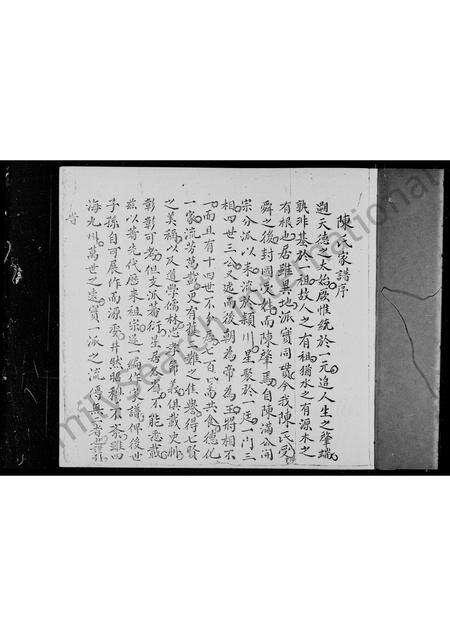 陳氏家譜序
遡天德之太始厥惟統於一元追人生之肇端
孰非基於祖故人之有祖猶水之有源木之
有根也居雖異地派實同今我陳氏受
舜之後封國受姓而陳肇焉自陳滿公開
宗分派以來流於穎川星聚於廷一門三
相四世三公又述而後朝為帝為王將相不
一而且有十四世不分七百口共食德化
一家流芳萬載更有難之佳譽得七賢
之美稱以及道學儒林忠孝節義俱載史冊
彰彰可考但支派蕃衍不能悉載
茲以著先代歷來祖宗造一編家譜俾後世
子孫自可展作而源委井然昭穆不紊雖四
海九州萬世之遠實一派之流傳無